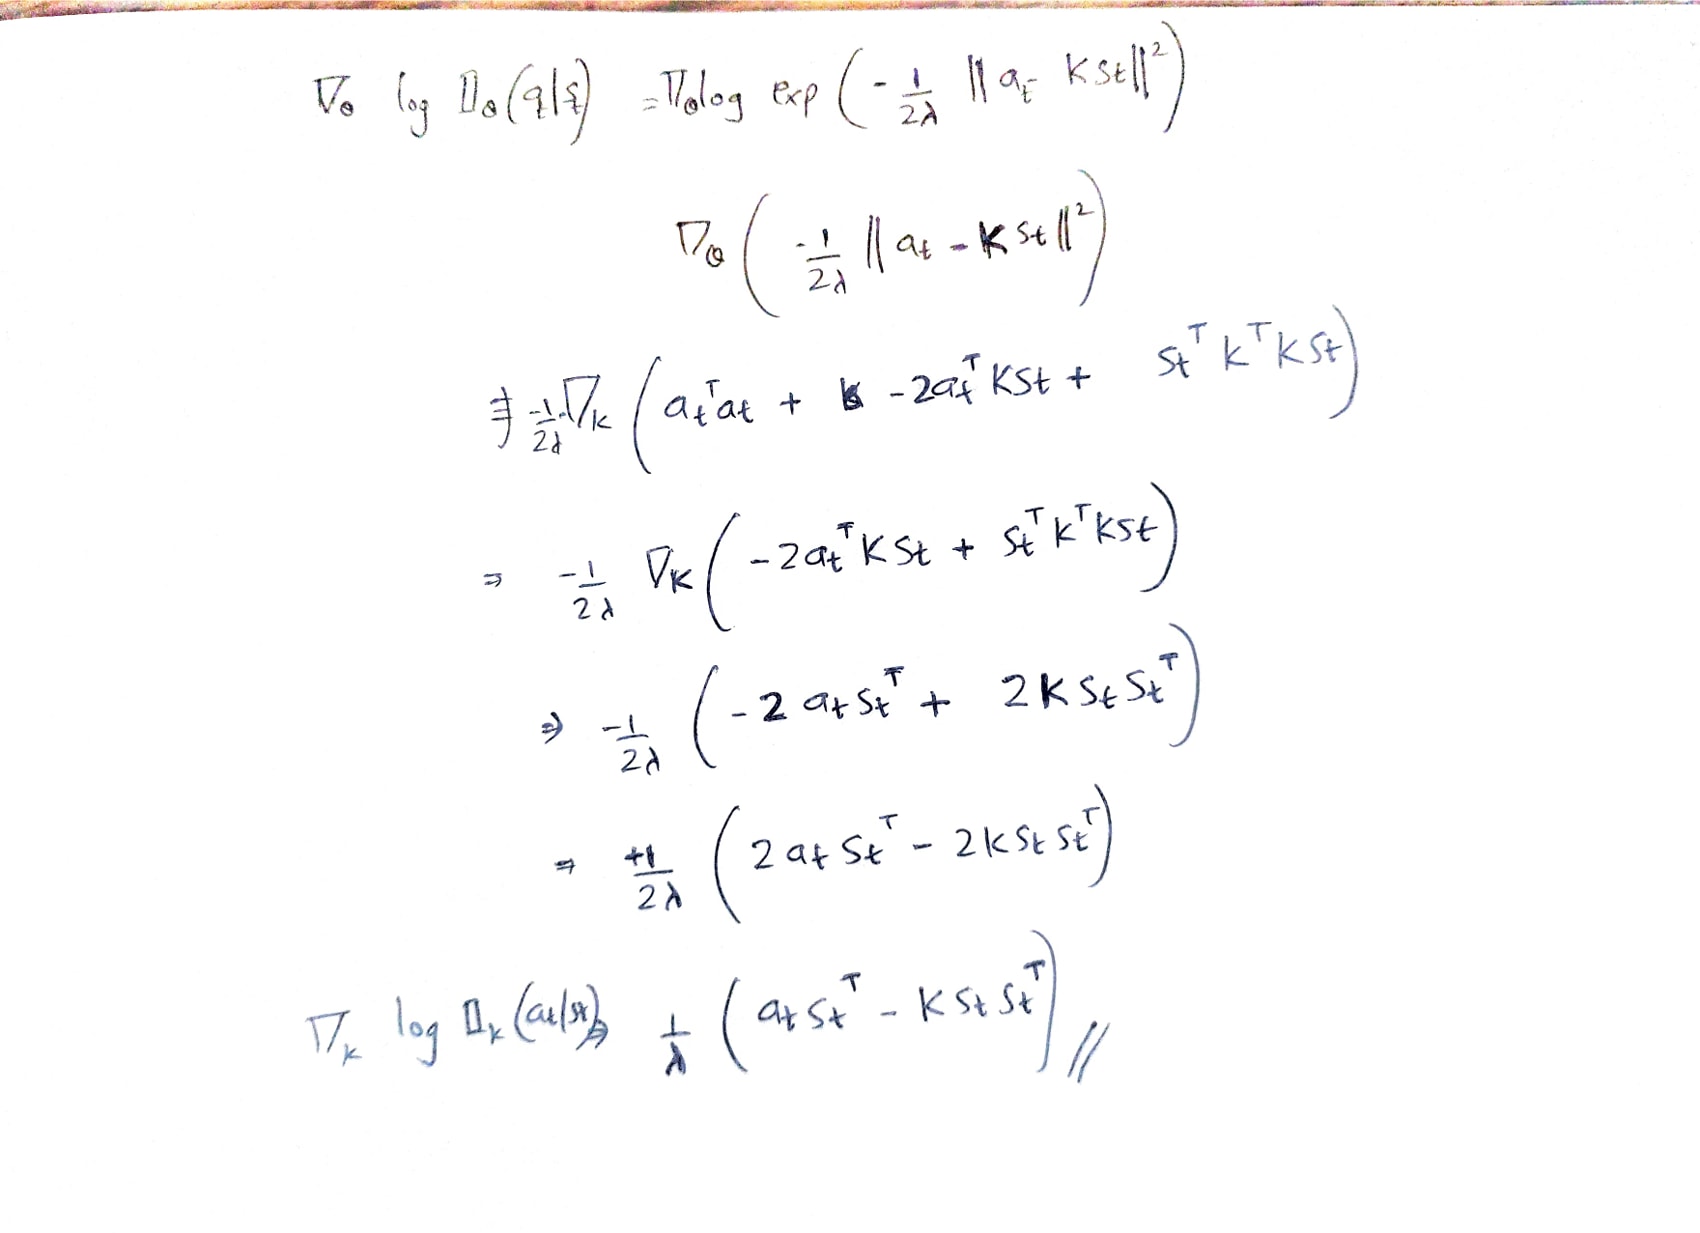 ∇θ log Πθ(at|st) = ∇θ log exp(-1/2λ ||at - Kst||²)
∇θ(-1/2λ ||at - Kst||²)
⇒ -1/2λ ∇K(atᵀat + -2atᵀKst + stᵀKᵀKst)
⇒ -1/2λ ∇K(-2atᵀKst + stᵀKᵀKst)
⇒ -1/2λ (-2atstᵀ + 2Kststᵀ)
⇒ +1/2λ (2atstᵀ - 2Kststᵀ)
∇K log ΠK(at|st) ⇒ 1/λ (atstᵀ - Kststᵀ)//